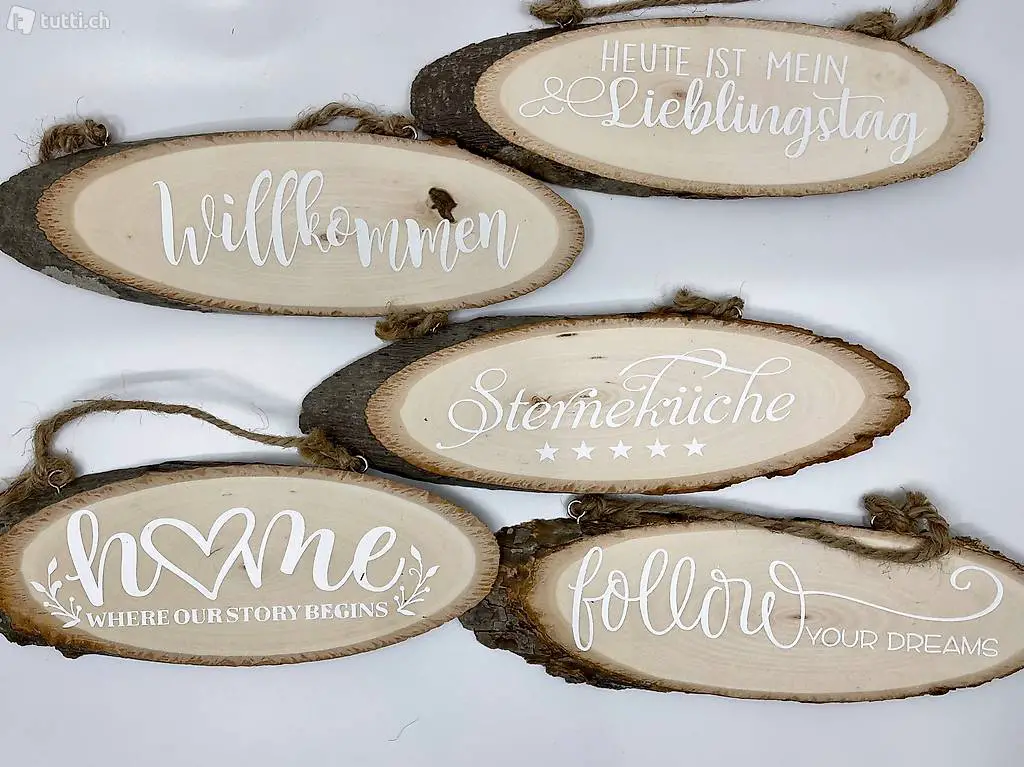 tutti.ch
HEUTE IST MEIN
Lieblingstag
Willkommen
Sterneküche
home
WHERE OUR STORY BEGINS
follow
YOUR DREAMS